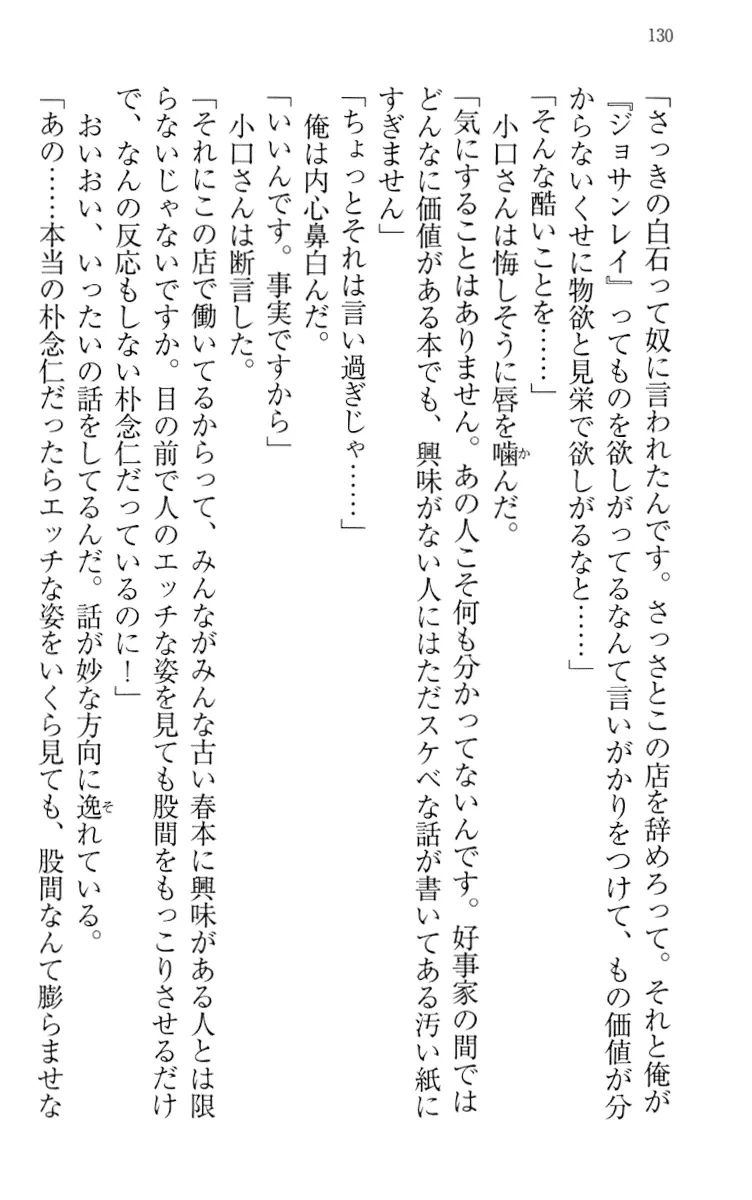 130
「さっきの白石って奴に言われたんです。さっさとこの店を辞めろって。それと俺が
『ジョサンレイ』ってものを欲しがってるなんて言いがかりをつけて、もの価値が分
からないくせに物欲と見栄で欲しがるなと……」
「そんな酷いことを……」
小口さんは悔しそうに唇を噛んだ。
「気にすることはありません。あの人こそ何も分かってないんです。好事家の間では
どんなに価値がある本でも、興味がない人にはただスケベな話が書いてある汚い紙に
すぎません」
「ちょっとそれは言い過ぎじゃ……」
俺は内心鼻白んだ。
「いいんです。事実ですから」
小口さんは断言した。
「それにこの店で働いてるからって、みんながみんな古い春本に興味がある人とは限
らないじゃないですか。目の前で人のエッチな姿を見ても股間をもっこりさせるだけ
で、なんの反応もしない朴念仁だっているのに！」
おいおい、いったいの話をしてるんだ。話が妙な方向に逸れている。
「あの……本当の朴念仁だったらエッチな姿をいくら見ても、股間なんて膨らませな